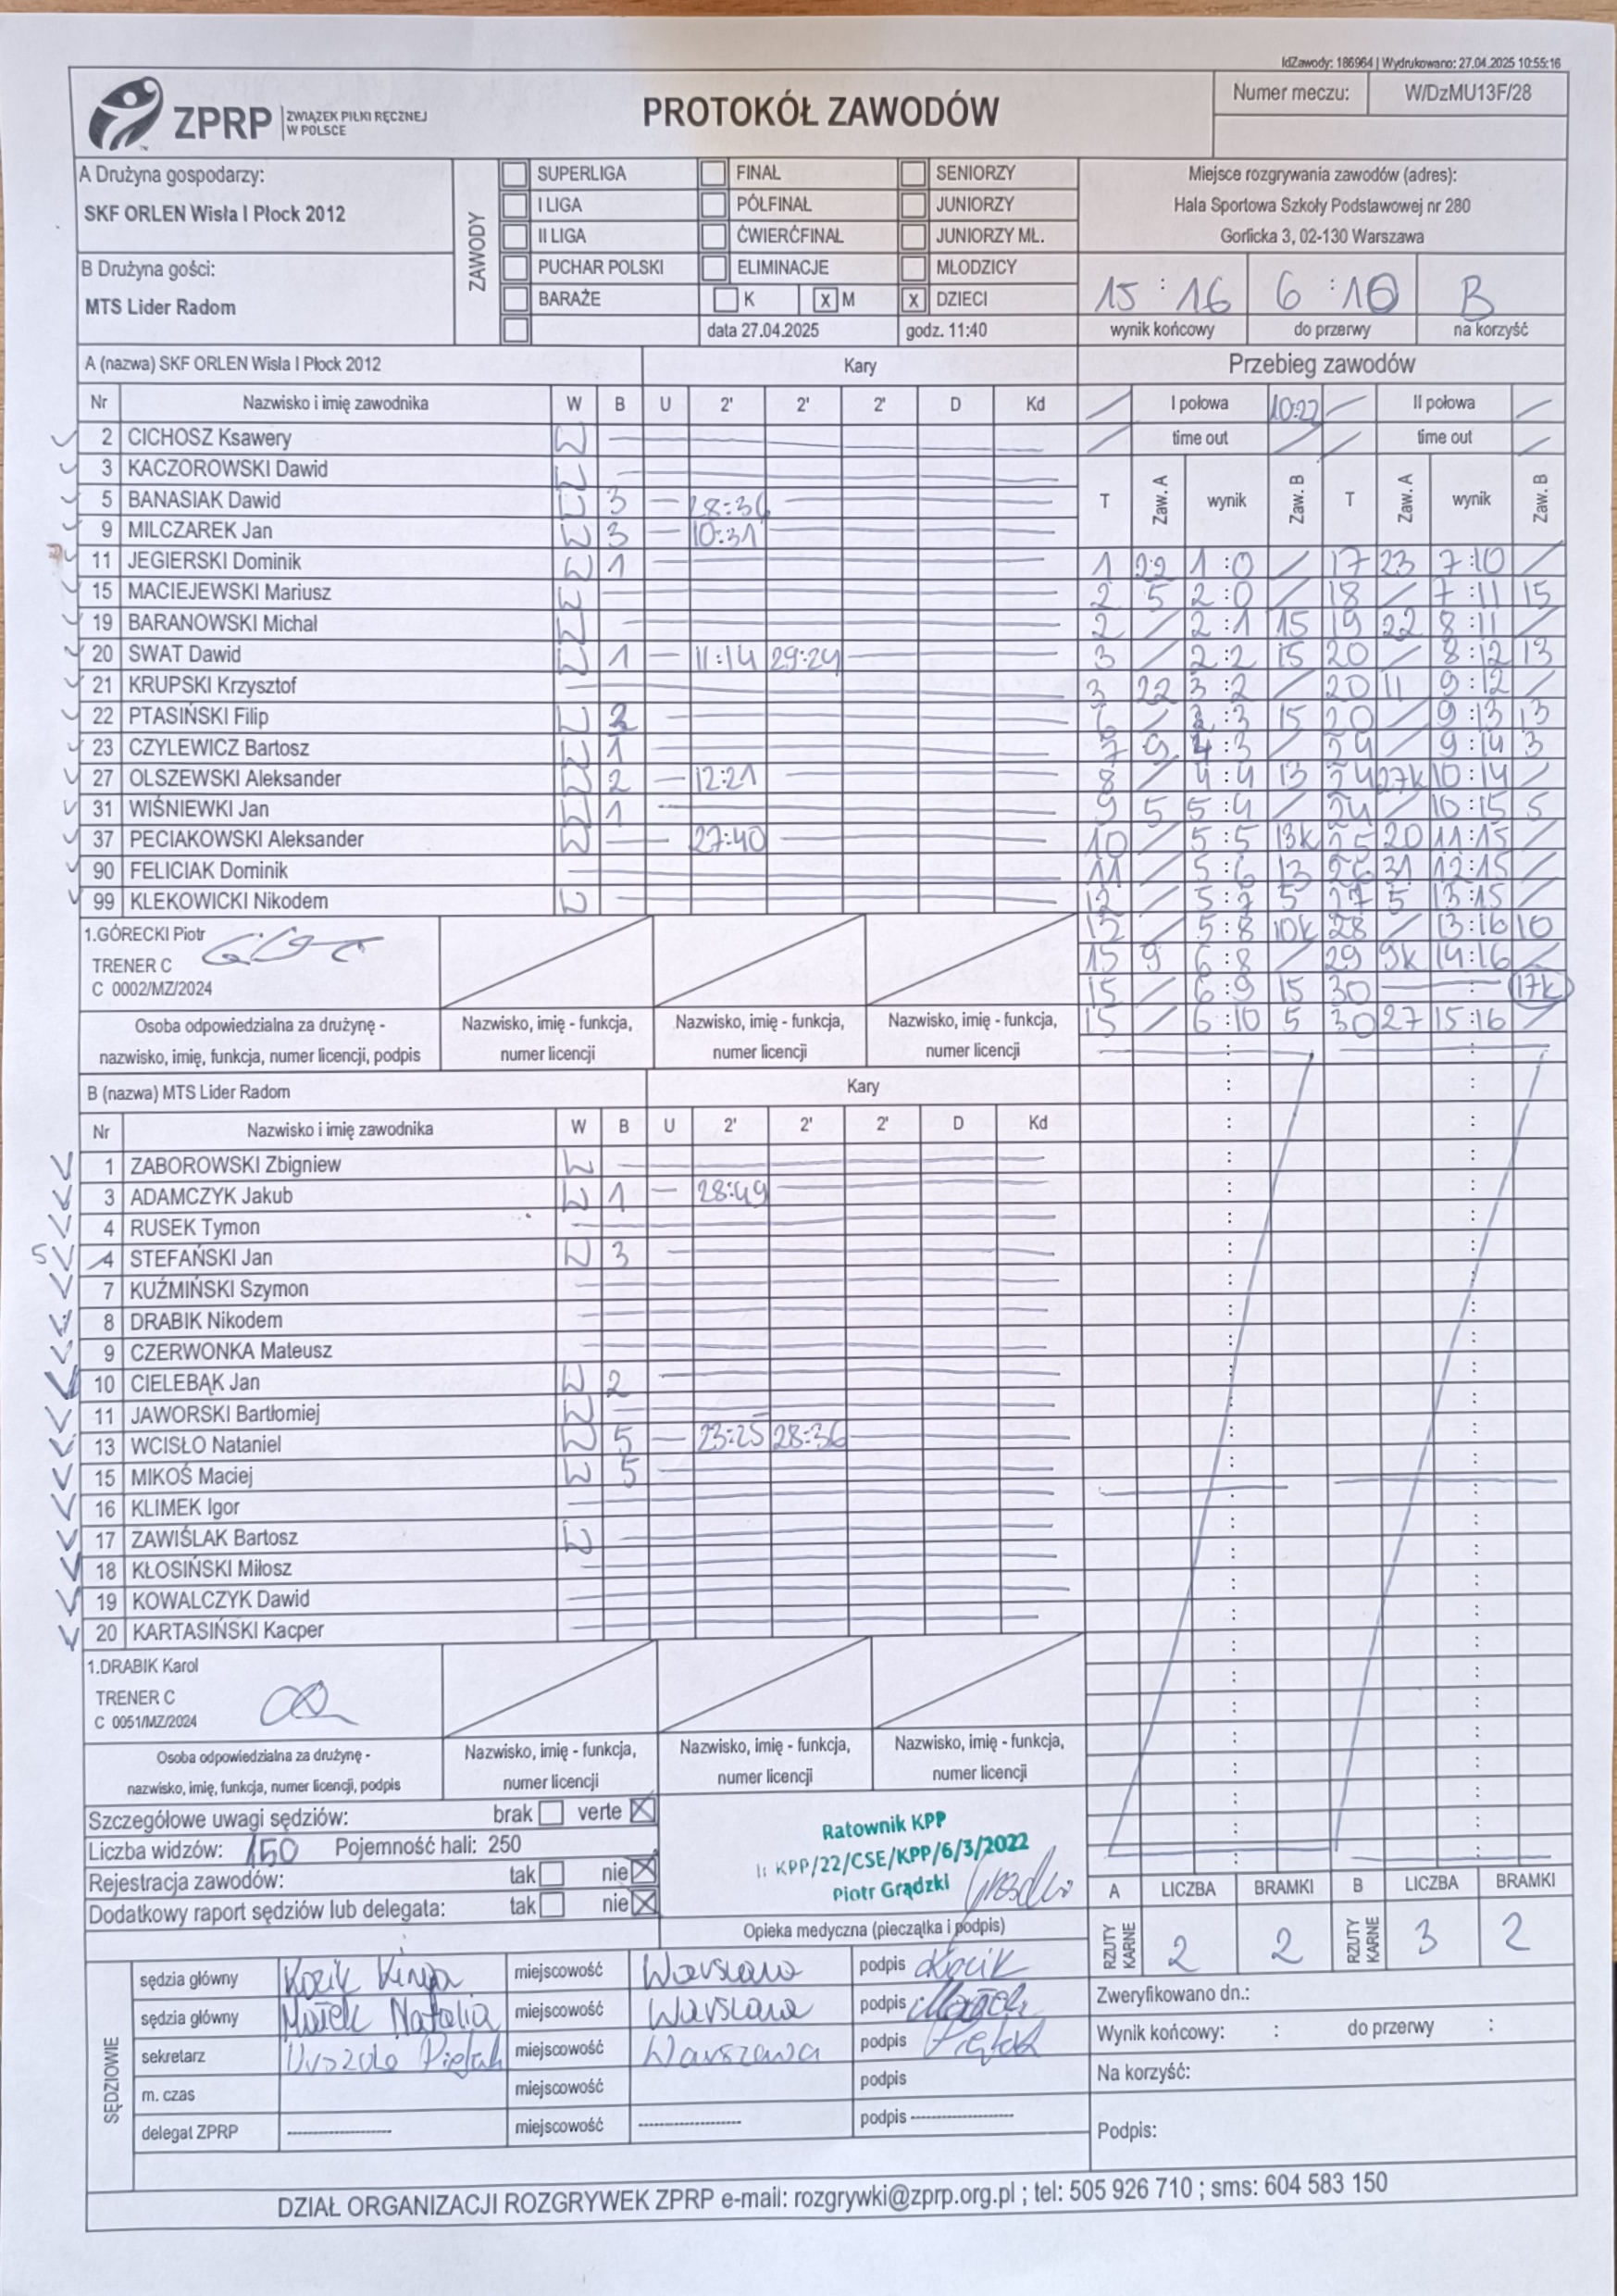 IdZawody: 186964 | Wydrukowano: 27.04.2025 10:55:16
ZPRP ZWIĄZEK PIŁKI RĘCZNEJ W POLSCE
PROTOKÓŁ ZAWODÓW
Numer meczu: W/DzMU13F/28
A Drużyna gospodarzy:
SKF ORLEN Wisła I Płock 2012
B Drużyna gości:
MTS Lider Radom
ZAWODY
SUPERLIGA FINAŁ SENIORZY
I LIGA PÓŁFINAŁ JUNIORZY
II LIGA ĆWIERĆFINAŁ JUNIORZY MŁ.
PUCHAR POLSKI ELIMINACJE MŁODZICY
BARAŻE K X M X DZIECI
data 27.04.2025 godz. 11:40
Miejsce rozgrywania zawodów (adres):
Hala Sportowa Szkoły Podstawowej nr 280
Gorlicka 3, 02-130 Warszawa
15 : 16 6 : 10 B
wynik końcowy do przerwy na korzyść
A (nazwa) SKF ORLEN Wisła I Płock 2012 Kary
Nr Nazwisko i imię zawodnika W B U 2' 2' 2' D Kd
2 CICHOSZ Ksawery W
3 KACZOROWSKI Dawid W
5 BANASIAK Dawid W 3 — 28:36
9 MILCZAREK Jan W 3 — 10:31
11 JEGIERSKI Dominik W 1
15 MACIEJEWSKI Mariusz W
19 BARANOWSKI Michał W
20 SWAT Dawid W 1 — 11:14 29:24
21 KRUPSKI Krzysztof
22 PTASIŃSKI Filip W 3
23 CZYLEWICZ Bartosz W 1
27 OLSZEWSKI Aleksander W 2 — 12:21
31 WIŚNIEWKI Jan W 1
37 PECIAKOWSKI Aleksander W — 27:40
90 FELICIAK Dominik
99 KLEKOWICKI Nikodem W
1.GÓRECKI Piotr
TRENER C
C 0002/MZ/2024
Osoba odpowiedzialna za drużynę -
nazwisko, imię, funkcja, numer licencji, podpis
Nazwisko, imię - funkcja, numer licencji
Nazwisko, imię - funkcja, numer licencji
Nazwisko, imię - funkcja, numer licencji
Przebieg zawodów
I połowa 10:22 II połowa
time out time out
T Zaw. A wynik Zaw. B T Zaw. A wynik Zaw. B
1 22 1 :0 / 17 23 7 :10 /
2 5 2 :0 / 18 / 7 :11 15
2 / 2 :1 15 19 22 8 :11 /
3 / 2 :2 15 20 / 8 :12 13
3 22 3 :2 / 20 11 9 :12 /
6 / 3 :3 15 20 / 9 :13 13
7 9 4 :3 / 24 / 9 :14 3
8 / 4 :4 13 24 27k 10 :14 /
9 5 5 :4 / 24 / 10 :15 5
10 / 5 :5 13k 25 20 11 :15 /
11 / 5 :6 13 26 31 12 :15 /
12 / 5 :7 5 27 5 13 :15 /
12 / 5 :8 10k 28 / 13 :16 10
15 9 6 :8 / 29 9k 14 :16 /
15 / 6 :9 15 30 — : 17k
15 / 6 :10 5 30 27 15 :16 /
B (nazwa) MTS Lider Radom Kary
Nr Nazwisko i imię zawodnika W B U 2' 2' 2' D Kd
1 ZABOROWSKI Zbigniew W
3 ADAMCZYK Jakub W 1 — 28:49
4 RUSEK Tymon
5 4 STEFAŃSKI Jan W 3
7 KUŹMIŃSKI Szymon
8 DRABIK Nikodem
9 CZERWONKA Mateusz
10 CIELEBĄK Jan W 2
11 JAWORSKI Bartłomiej W
13 WCISŁO Nataniel W 5 — 23:25 28:36
15 MIKOŚ Maciej W 5
16 KLIMEK Igor
17 ZAWIŚLAK Bartosz W
18 KŁOSIŃSKI Miłosz
19 KOWALCZYK Dawid
20 KARTASIŃSKI Kacper
1.DRABIK Karol
TRENER C
C 0051/MZ/2024
Osoba odpowiedzialna za drużynę -
nazwisko, imię, funkcja, numer licencji, podpis
Nazwisko, imię - funkcja, numer licencji
Nazwisko, imię - funkcja, numer licencji
Nazwisko, imię - funkcja, numer licencji
Szczegółowe uwagi sędziów: brak verte X
Liczba widzów: 150 Pojemność hali: 250
Rejestracja zawodów: tak nie X
Dodatkowy raport sędziów lub delegata: tak nie X
Ratownik KPP
KPP/22/CSE/KPP/6/3/2022
Piotr Grądzki
Opieka medyczna (pieczątka i podpis)
A LICZBA BRAMKI B LICZBA BRAMKI
RZUTY KARNE 2 2 RZUTY KARNE 3 2
SĘDZIOWIE
sędzia główny Kozik Kinga miejscowość Warszawa podpis Kozik
sędzia główny Małek Natalia miejscowość Warszawa podpis
sekretarz Urszula Piętak miejscowość Warszawa podpis Piętak
m. czas miejscowość podpis
delegat ZPRP miejscowość podpis
Zweryfikowano dn.:
Wynik końcowy: : do przerwy :
Na korzyść:
Podpis:
DZIAŁ ORGANIZACJI ROZGRYWEK ZPRP e-mail: rozgrywki@zprp.org.pl ; tel: 505 926 710 ; sms: 604 583 150